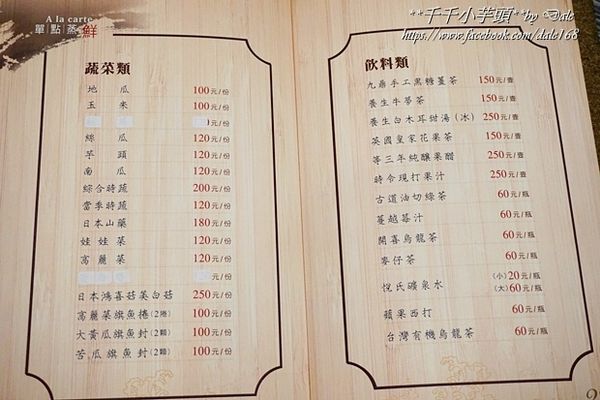 **千千小芋頭**by Dale
https://www.facebook.com/dale168
A la carte
單點蒸鮮
蔬菜類
地瓜 100元/份
玉米 100元/份
0元/份
絲瓜 120元/份
芋頭 120元/份
南瓜 120元/份
綜合時蔬 200元/份
當季時蔬 120元/份
日本山藥 180元/份
娃娃菜 120元/份
高麗菜 120元/份
元/份
日本鴻喜菇美白菇 250元/份
高麗菜旗魚捲(2捲) 100元/份
大黃瓜旗魚封(2顆) 100元/份
苦瓜旗魚封(2顆) 100元/份
飲料類
九鼎手工黑糖薑茶 150元/壺
養生牛蒡茶 150元/壺
養生白木耳甜湯(冰) 250元/壺
英國皇家花果茶 150元/壺
等三年純釀果醋 250元/壺
時令現打果汁 250元/壺
古道油切綠茶 60元/瓶
蔓越莓汁 60元/瓶
開喜烏龍茶 60元/瓶
麥仔茶 60元/瓶
悅氏礦泉水 (小)20元/瓶
(大)60元/瓶
蘋果西打 60元/瓶
台灣有機烏龍茶 60元/瓶